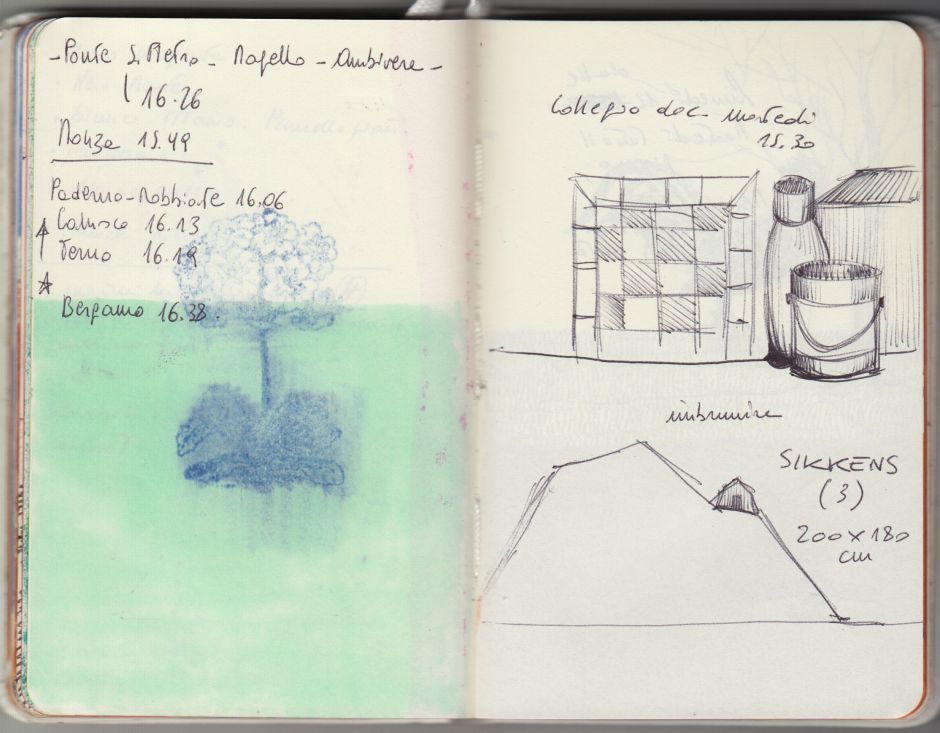 - Ponte S. Pietro - Mapello - Ambivere -
16.26
Monza 15.49
Paderno-Robbiate 16.06
Calusco 16.13
Terno 16.19
Bergamo 16.38.
Collegio doc. martedì
15.30
imbrunire
SIKKENS
(3)
200x180
cm